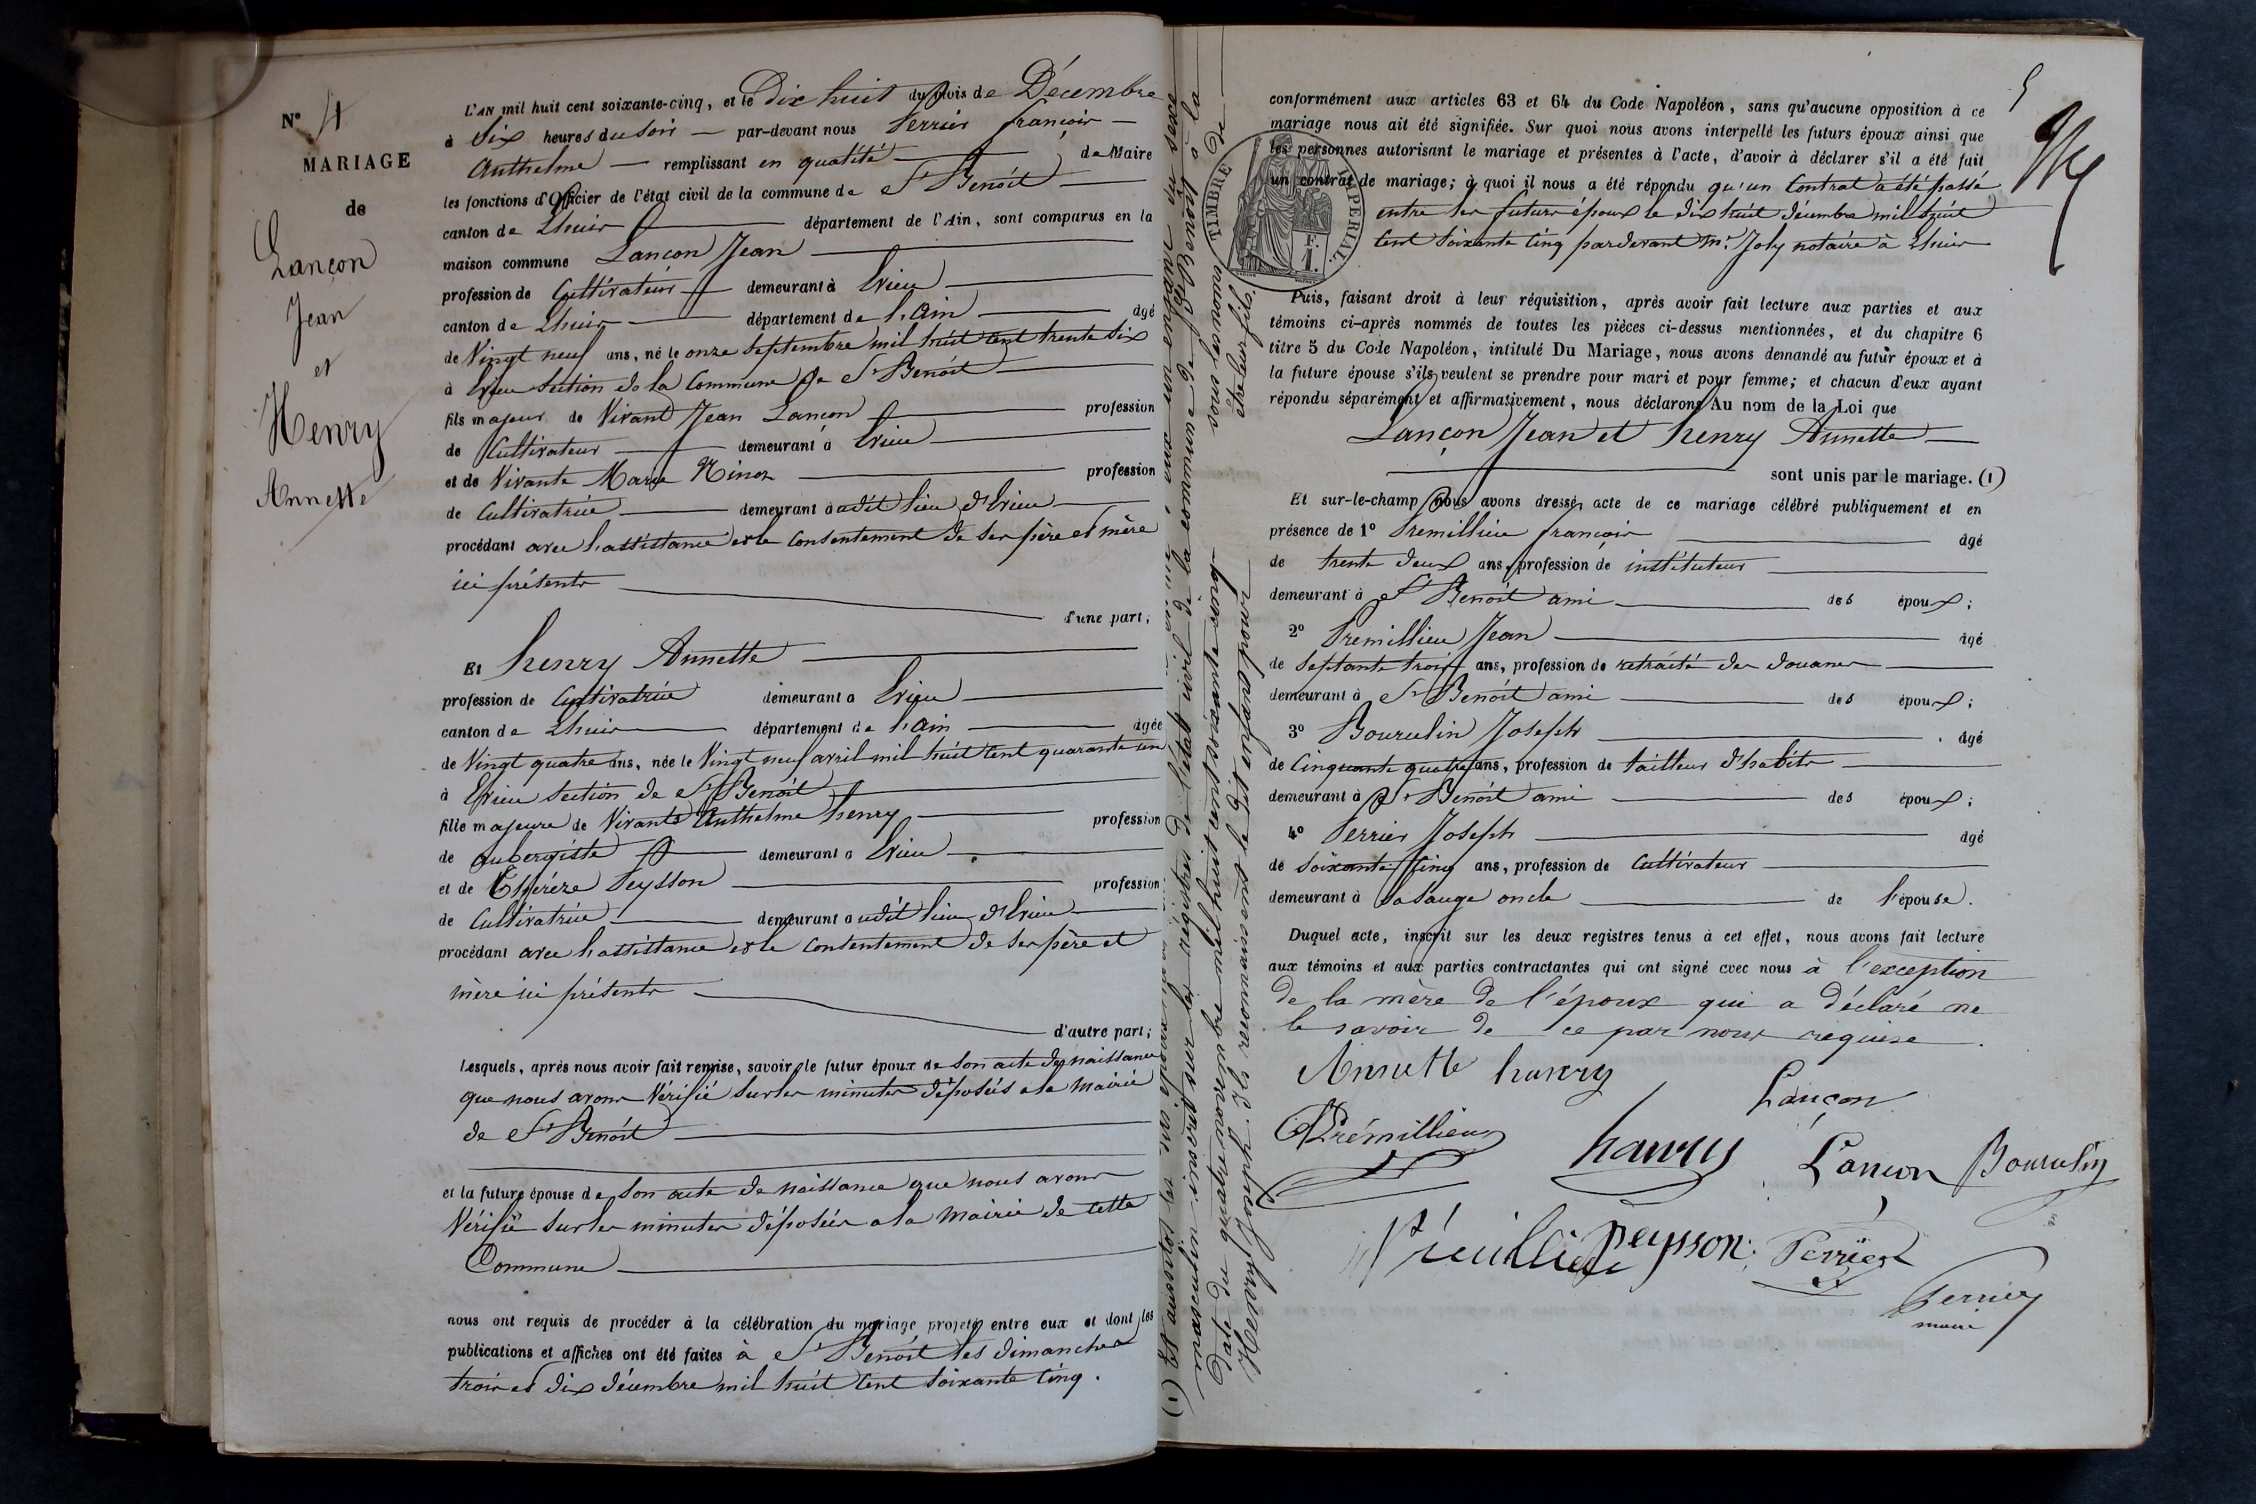 N° 4
MARIAGE
de
Lançon
Jean
et
Henry
Annette
L'AN mil huit cent soixante-cinq, et le Dix huit du mois de Décembre
à Six heures du soir par-devant nous Perrier françois
Anthelme remplissant en qualité de Maire
les fonctions d'Officier de l'état civil de la commune de St Benoît
canton de Lhuis département de l'Ain, sont comparus en la
maison commune Lançon Jean
profession de Cultivateur demeurant à Evieu
canton de Lhuis département de l'ain âgé
de Vingt neuf ans, né le onze Septembre mil huit cent trente Six
à Evieu Section de la Commune de St Benoît
fils majeur de Vivant Jean Lançon profession
de Cultivateur demeurant à Evieu
et de Vivante Marie Ninoz profession
de Cultivatrice demeurant audit lieu d'Evieu
procédant avec l'assistance et le consentement de Ses père et mère
ici présents
d'une part;
Et henry Annette
profession de Cultivatrice demeurant à Evieu
canton de Lhuis département de l'ain âgée
de Vingt quatre ans, née le Vingt neuf avril mil huit cent quarante un
à Evieu Section de St Benoît
fille majeure de Vivants Anthelme henry profession
de aubergiste demeurant à Evieu
et de Thérèze Peysson profession
de Cultivatrice demeurant audit lieu d'Evieu
procédant avec l'assistance et le consentement de Ses père et
mère ici présents
d'autre part;
Lesquels, après nous avoir fait remise, savoir, le futur époux de Son acte de naissance
que nous avons Vérifié Sur les minutes déposées à la Mairie
de St Benoît
et la future épouse de Son acte de naissance que nous avons
Vérifié Sur les minutes déposées à la Mairie de cette
Commune
nous ont requis de procéder à la célébration du mariage projeté entre eux et dont les
publications et affiches ont été faites à St Benoît les dimanches
trois et dix décembre mil huit cent Soixante Cinq.
(1) Et aussitôt les dits époux un enfant du sexe
masculin inscrit sur les registres de l'état civil de la commune de St Benoît à la
date du quatre novembre mil huit cent soixante cinq sous les nom et prénoms de
Henry Joseph. Ils reconnaissent le dit enfant pour être leur fils.
TIMBRE IMPERIAL
F.
1.
5
conformément aux articles 63 et 64 du Code Napoléon, sans qu'aucune opposition à ce
mariage nous ait été signifiée. Sur quoi nous avons interpellé les futurs époux ainsi que
les personnes autorisant le mariage et présentes à l'acte, d'avoir à déclarer s'il a été fait
un contrat de mariage; à quoi il nous a été répondu qu'un Contrat a été passé
entre les futurs époux le dix huit décembre mil huit
Cent Soixante Cinq pardevant Me Joly notaire à Lhuis
Puis, faisant droit à leur réquisition, après avoir fait lecture aux parties et aux
témoins ci-après nommés de toutes les pièces ci-dessus mentionnées, et du chapitre 6
titre 5 du Code Napoléon, intitulé Du Mariage, nous avons demandé au futur époux et à
la future épouse s'ils veulent se prendre pour mari et pour femme; et chacun d'eux ayant
répondu séparément et affirmativement, nous déclarons Au nom de la Loi que
Lançon Jean et henry Annette
sont unis par le mariage. (1)
Et sur-le-champ nous avons dressé acte de ce mariage célébré publiquement et en
présence de 1° Premillieu françois âgé
de trente deux ans, profession de instituteur
demeurant à St Benoît ami des époux;
2° Premillieu Jean âgé
de Septante trois ans, profession de retraité des douanes
demeurant à St Benoît ami des époux;
3° Bourulin Joseph âgé
de Cinquante quatre ans, profession de tailleur d'habits
demeurant à St Benoît ami des époux;
4° Perrier Joseph âgé
de Soixante Cinq ans, profession de Cultivateur
demeurant à Lasauge oncle de l'épouse.
Duquel acte, inscrit sur les deux registres tenus à cet effet, nous avons fait lecture
aux témoins et aux parties contractantes qui ont signé avec nous à l'exception
de la mère de l'époux qui a déclaré ne
le savoir de ce par nous requise.
Annette henry
Lançon
Prémillieu
henry
Lançon
Bourulin
Peysson
Perrier
Perrier
maire